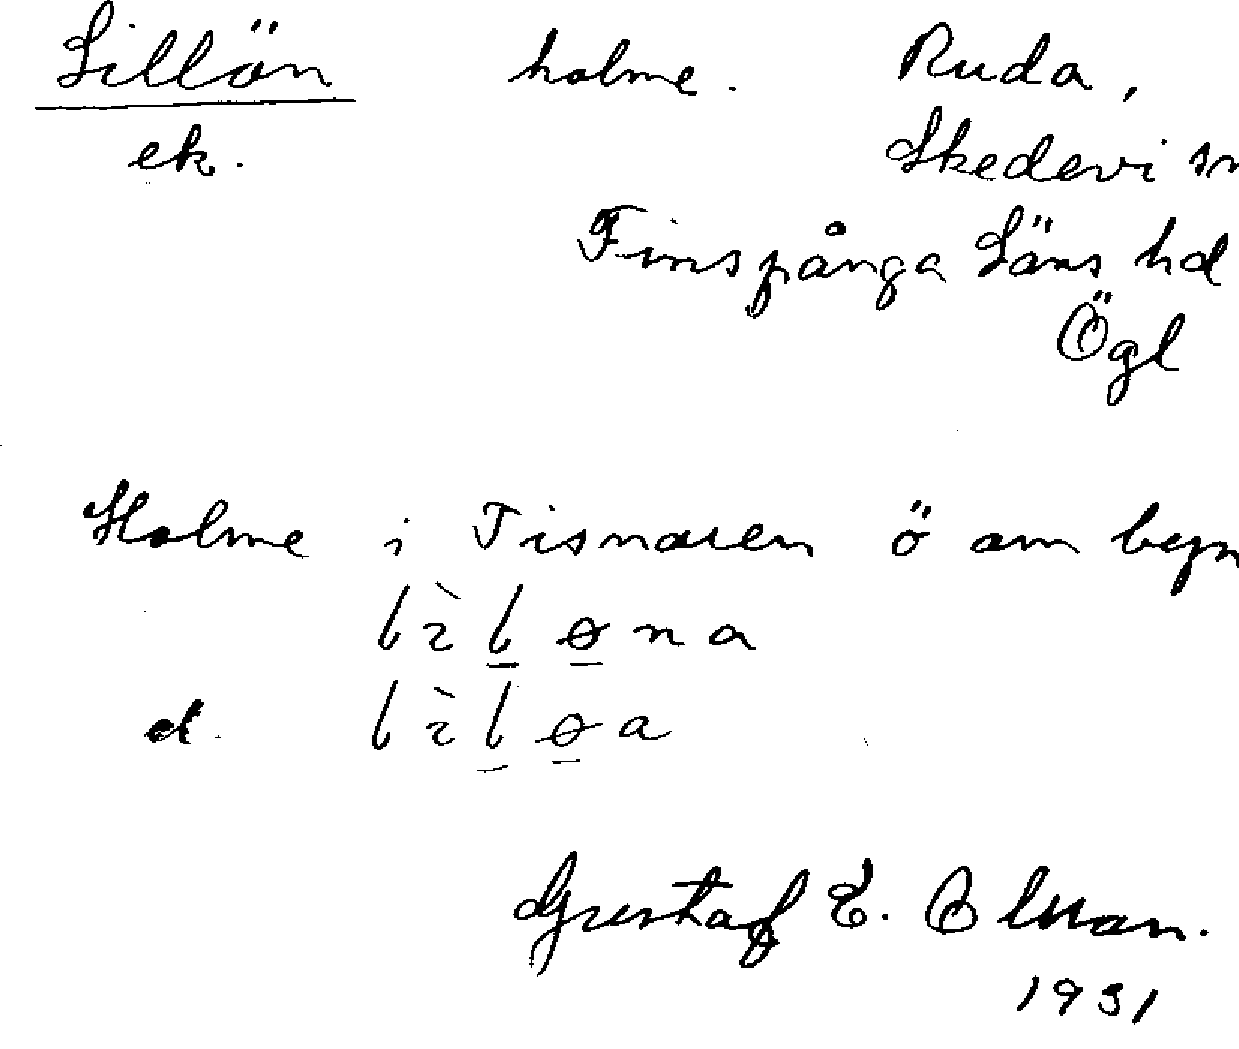 Lillön holme. Ruda,
ek. Skedevi sn
Finspånga Läns hd
Ögl
Holme i Tisnaren ö om byn
lìløna
d. lìløa
Gustaf E. Olman.
1931